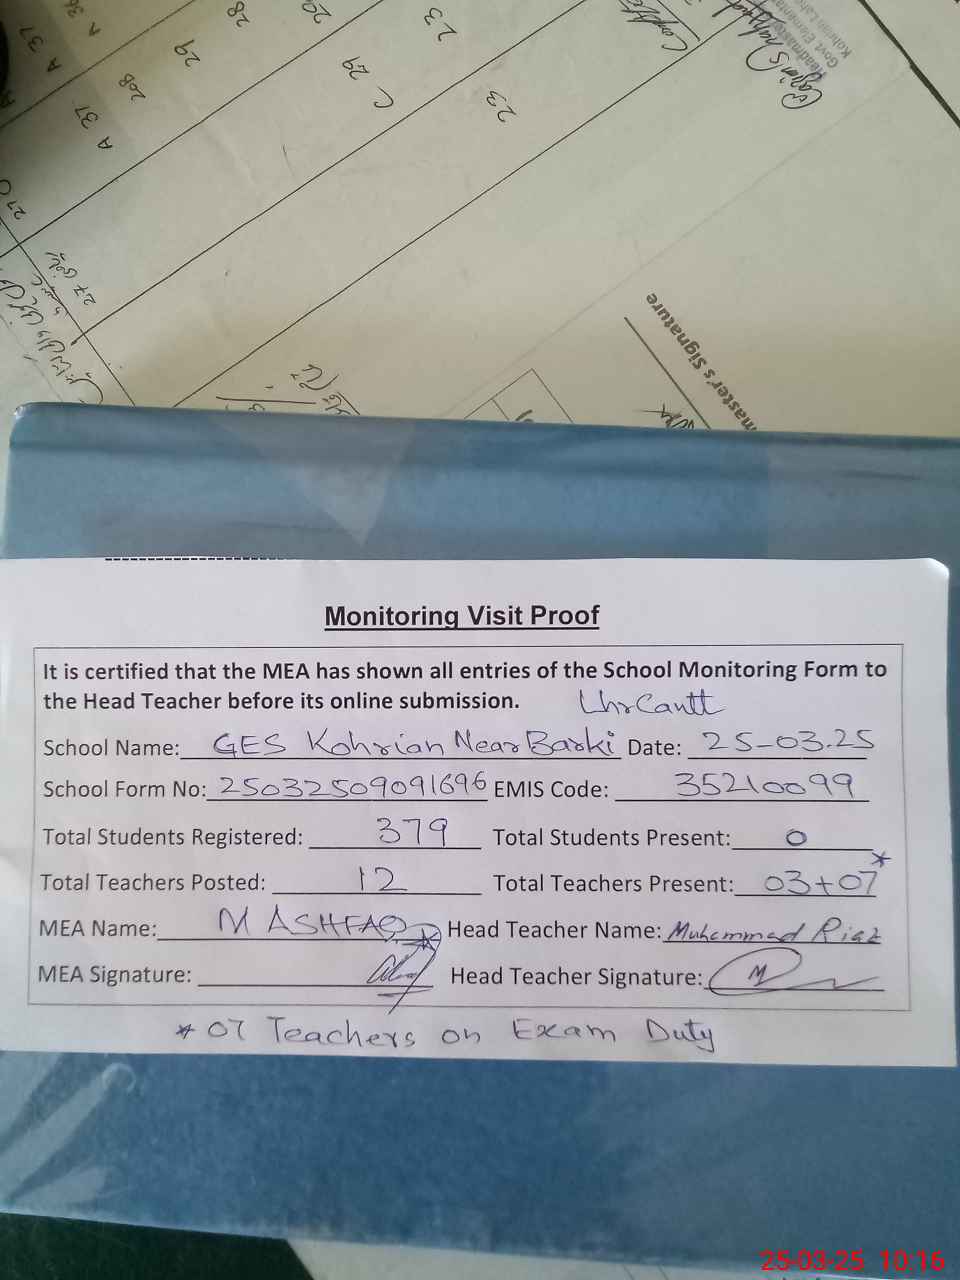 A 36
28
29
23
Complete
A 37
29
29
23
Headmaster
Govt. Elementary
A 37
20B
C
27
master's Signature
Monitoring Visit Proof
It is certified that the MEA has shown all entries of the School Monitoring Form to
the Head Teacher before its online submission. Lhr Cantt
School Name: GES Kohrian Near Barki Date: 25-03.25
School Form No: 25032509091696 EMIS Code: 35210099
Total Students Registered: 379 Total Students Present: 0
Total Teachers Posted: 12 Total Teachers Present: 03+07*
MEA Name: M ASHFAQ Head Teacher Name: Muhammad Riaz
MEA Signature: Head Teacher Signature:
* 07 Teachers on Exam Duty
25-03-25 10:16